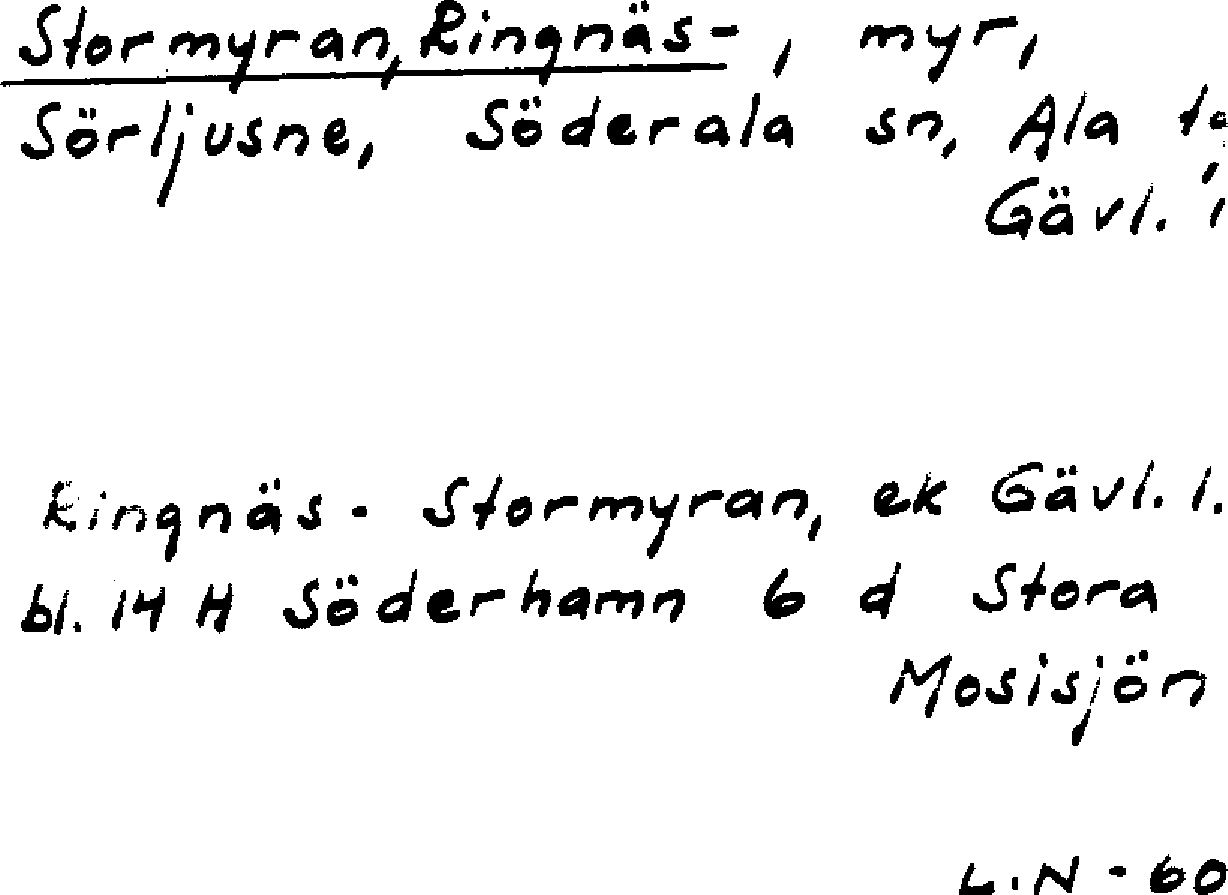 Stormyran, Ringnäs-, myr,
Sörljusne, Söderala sn, Ala
Gävl.
Ringnäs- Stormyran, ek Gävl. l.
bl. 14 H Söderhamn 6 d Stora
Mosisjön
L.N - 60